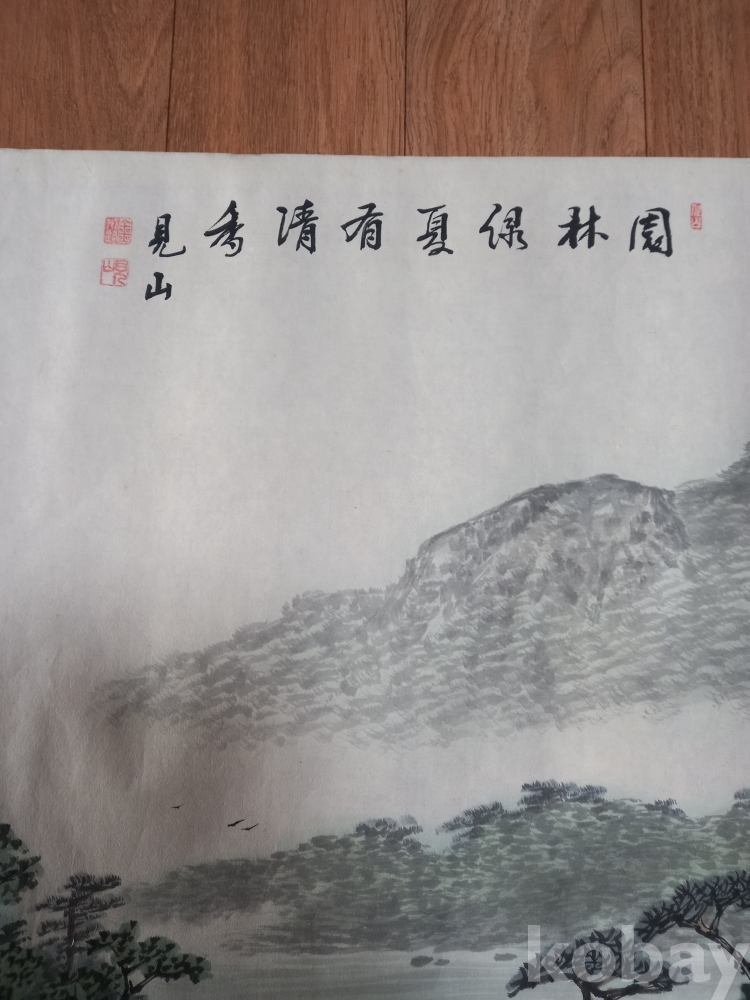 園林綠夏有清香
見山
kobay